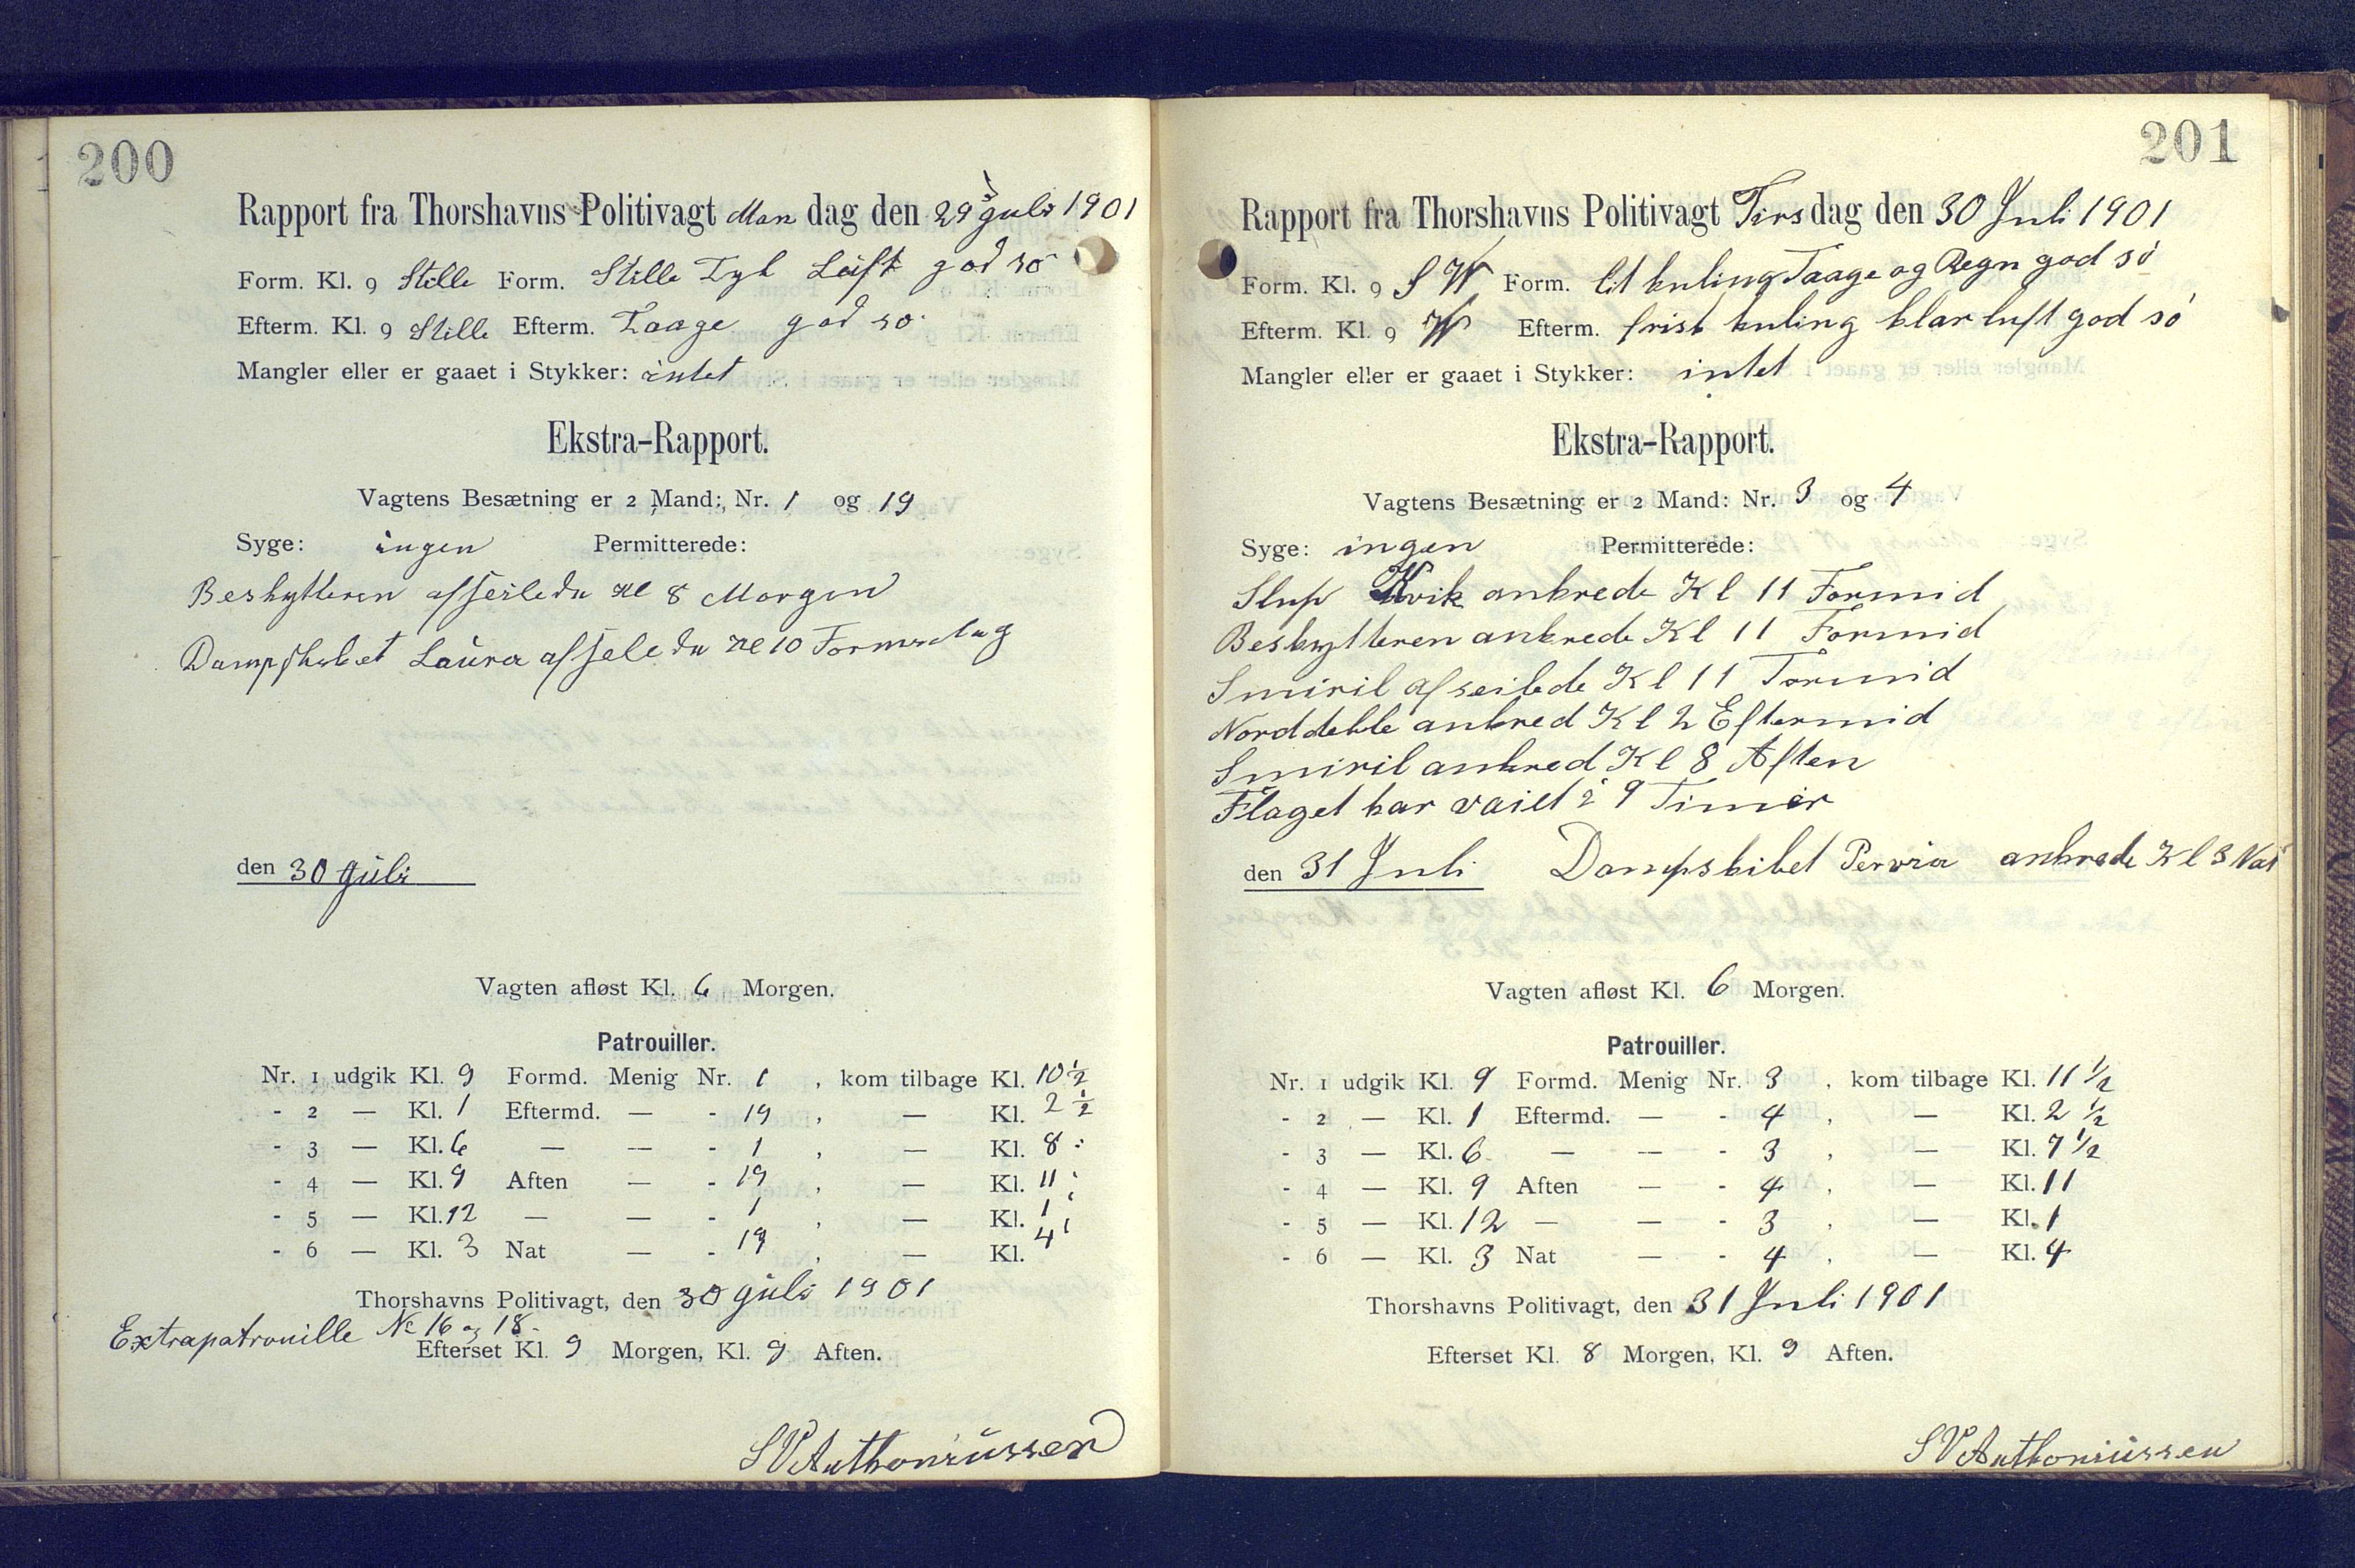 200
Rapport fra Thorshavns Politivagt Man dag den 29 Juli 1901
Form. Kl. 9 Stille Form. Stille Tyk Luft god sø
Efterm. Kl. 9 Stille Efterm. Taage god sø
Mangler eller er gaaet i Stykker: intet
Ekstra-Rapport.
Vagtens Besætning er 2 Mand: Nr. 1 og 19
Syge: ingen Permitterede:
Beskytteren afseilede Kl 8 Morgen
Dampskibet Laura afselede Kl 10 Formedag
den 30 Juli
Vagten afløst Kl. 6 Morgen.
Patrouiller.
Nr. 1 udgik Kl. 9 Formd. Menig Nr. 1 , kom tilbage Kl. 10 ½
- 2 — Kl. 1 Eftermd. — - 19 , — Kl. 2 ½
- 3 — Kl. 6 — — - 1 , — Kl. 8
- 4 — Kl. 9 Aften — - 19 , — Kl. 11
- 5 — Kl. 12 — — - 1 , — Kl. 1
- 6 — Kl. 3 Nat — - 19 , — Kl. 4
Thorshavns Politivagt, den 30 Juli 1901
Extrapatrouille No 16 og 18.
Efterset Kl. 9 Morgen, Kl. 9 Aften.
SVAnthoniussen
201
Rapport fra Thorshavns Politivagt Tirs dag den 30 Juli 1901
Form. Kl. 9 S W Form. lit kuling Taage og Regn god sø
Efterm. Kl. 9 W Efterm. frisk kuling klar luft god sø
Mangler eller er gaaet i Stykker: intet
Ekstra-Rapport.
Vagtens Besætning er 2 Mand: Nr. 3 og 4
Syge: ingen Permitterede:
Slup Kvik ankrede Kl 11 Formid
Beskytteren ankrede Kl 11 Formid
Smiril afseilede Kl 11 Formid
Norddeble ankred Kl 2 Eftermid
Smiril ankred Kl 8 Aften
Flaget har vaiet i 9 Timer
den 31 Juli Dampskibet Pervia ankrede Kl 3 Nat
Vagten afløst Kl. 6 Morgen.
Patrouiller.
Nr. 1 udgik Kl. 9 Formd. Menig Nr. 3 , kom tilbage Kl. 11 ½
- 2 — Kl. 1 Eftermd. — - 4 , — Kl. 2 ½
- 3 — Kl. 6 — — - 3 , — Kl. 7 ½
- 4 — Kl. 9 Aften — - 4 , — Kl. 11
- 5 — Kl. 12 — — - 3 , — Kl. 1
- 6 — Kl. 3 Nat — - 4 , — Kl. 4
Thorshavns Politivagt, den 31 Juli 1901
Efterset Kl. 8 Morgen, Kl. 9 Aften.
SVAnthoniussen